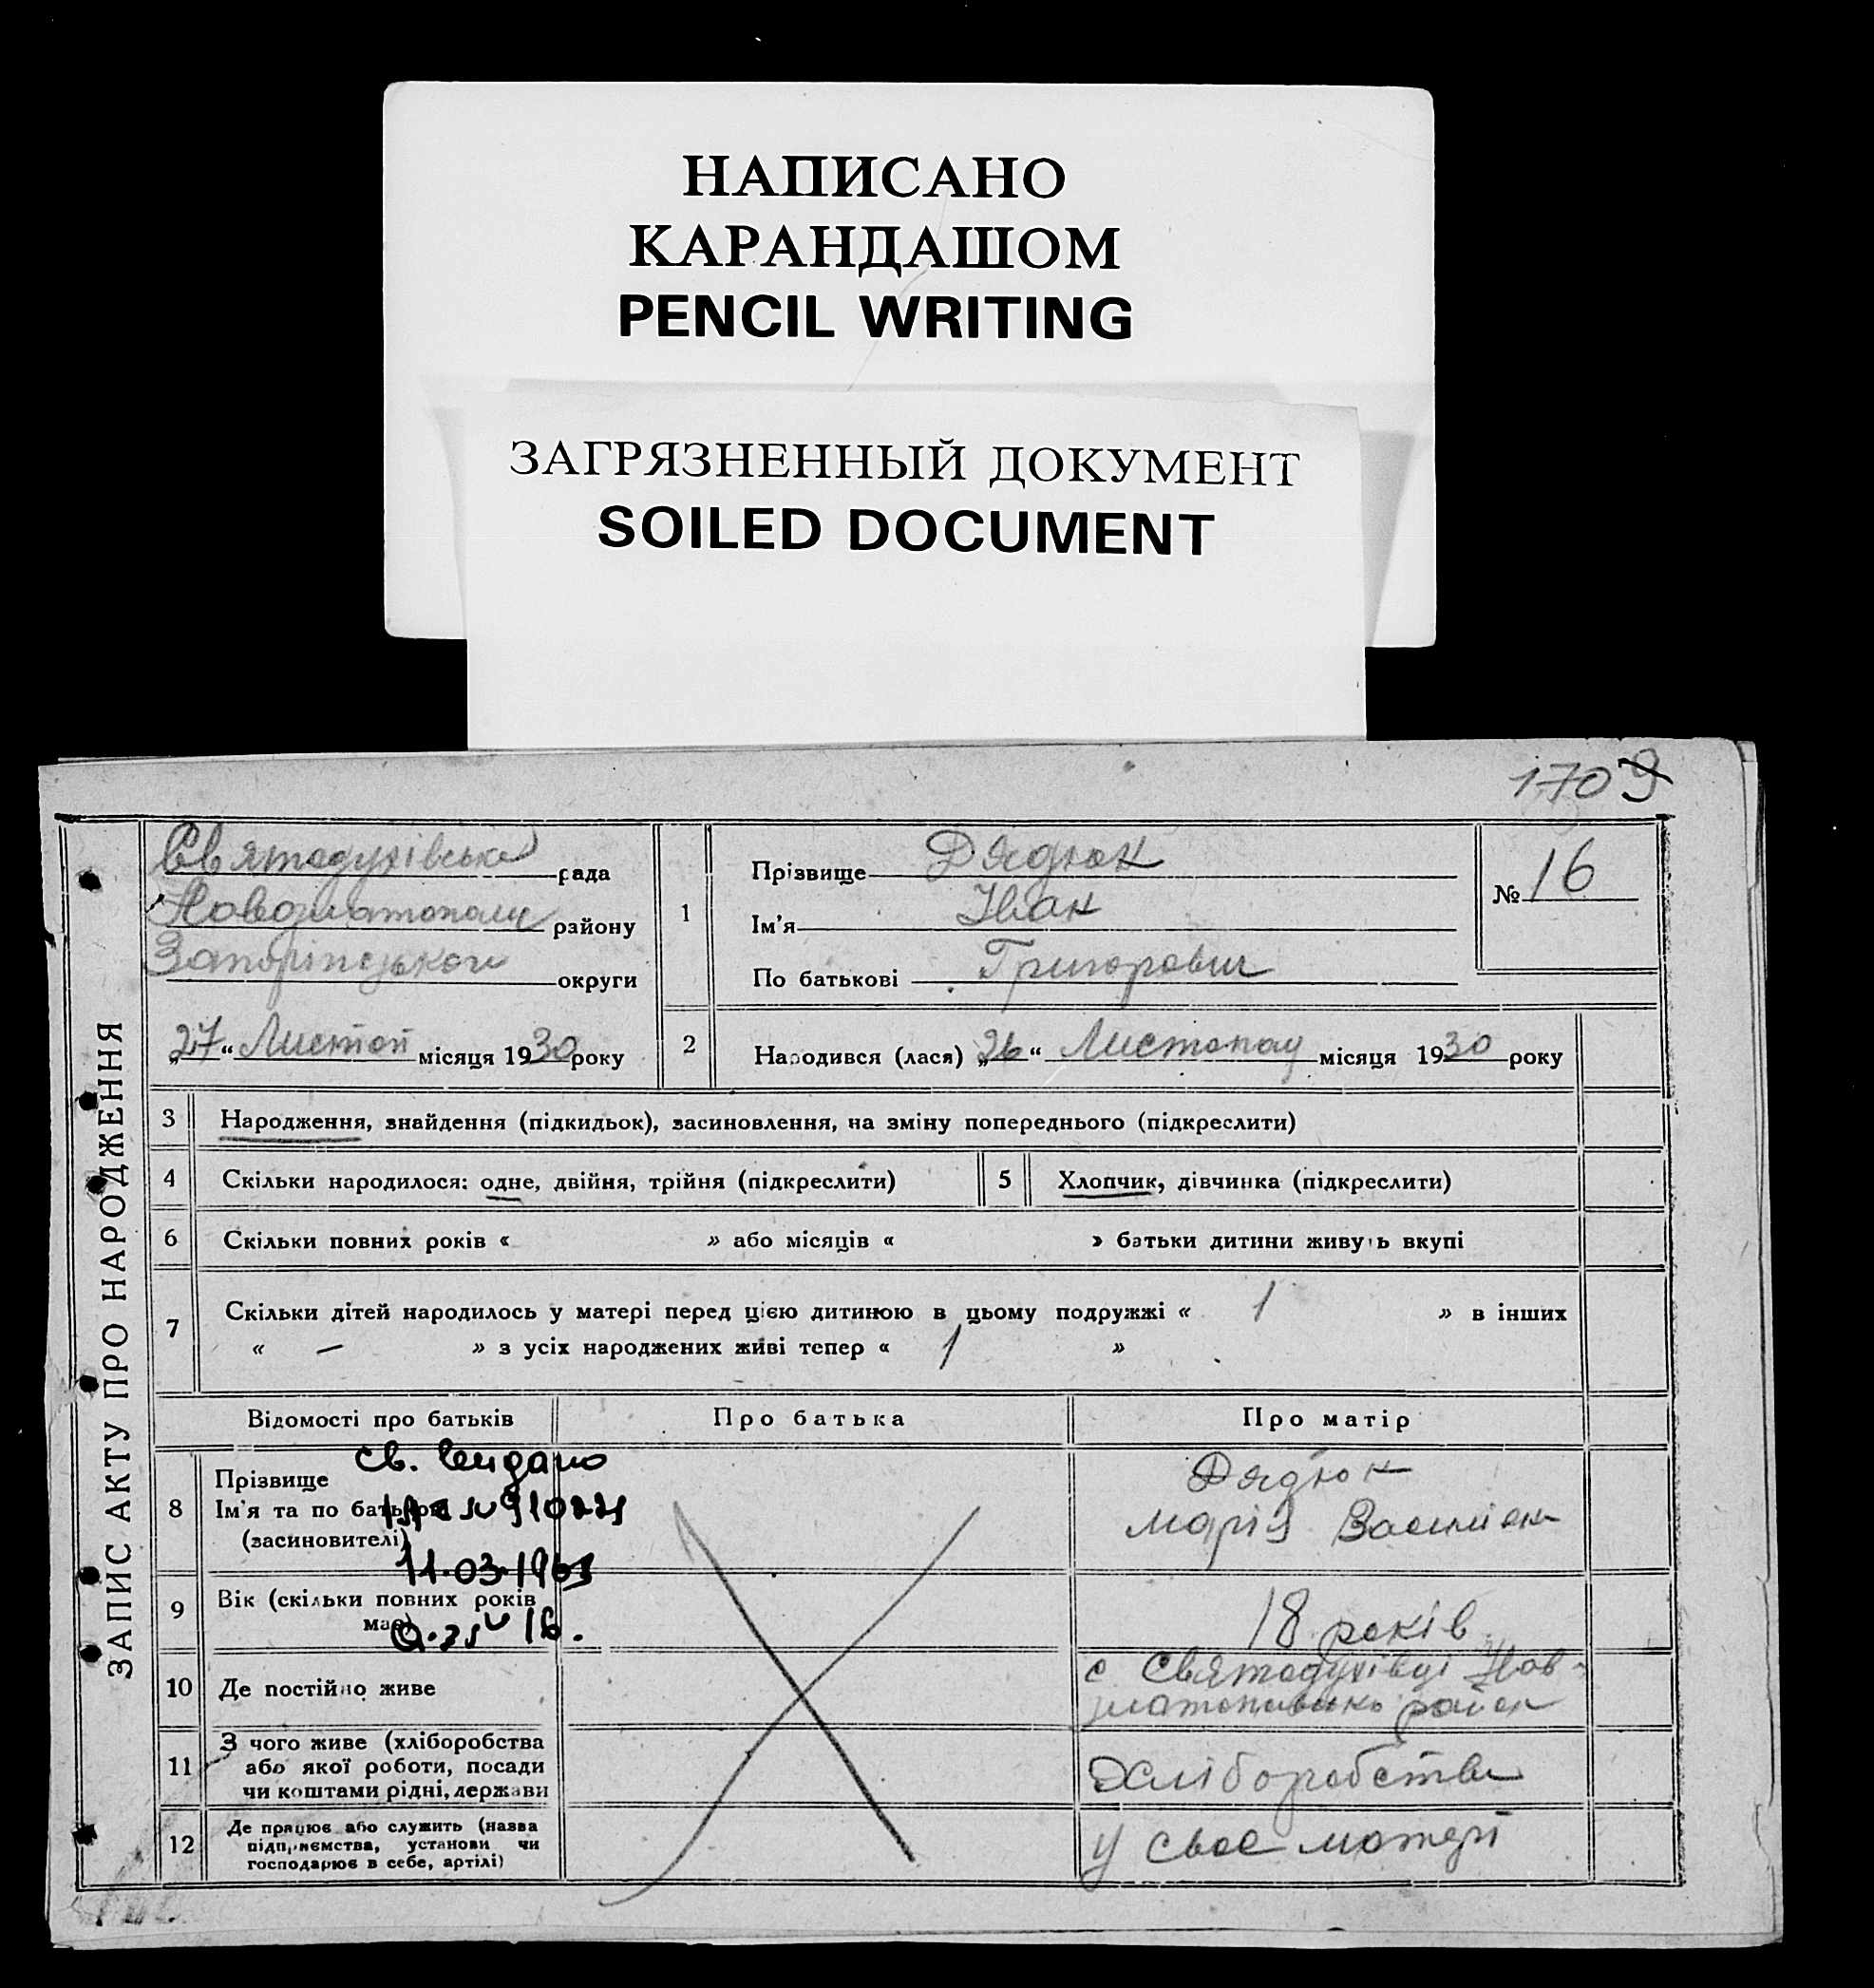 НАПИСАНО
КАРАНДАШОМ
PENCIL WRITING
ЗАГРЯЗНЕННЫЙ ДОКУМЕНТ
SOILED DOCUMENT
1709
ЗАПИС АКТУ ПРО НАРОДЖЕННЯ
Святодухівська рада
району
округи
„27“ Листоп місяця 1930 року
1
Прізвище Дядюк
Ім'я Іван
По батькові Григорович
№ 16
2
Народився (лася) „26“ Листопад місяця 1930 року
3 Народження, знайдення (підкидьок), засиновлення, на зміну попереднього (підкреслити)
4 Скільки народилося: одне, двійня, трійня (підкреслити)
5 Хлопчик, дівчинка (підкреслити)
6 Скільки повних років « » або місяців « » батьки дитини живуть вкупі
7 Скільки дітей народилось у матері перед цією дитиною в цьому подружжі « 1 » в інших
« — » з усіх народжених живі тепер « 1 »
Відомості про батьків
Про батька
Про матір
8 Прізвище
Ім'я та по батькові
(засиновителі)
св.
11.03.1963
Дядюк
Марія
9 Вік (скільки повних років
має)
16.
18 років
10 Де постійно живе
с. Святодухівці Нов-
район
11 З чого живе (хліборобства
або якої роботи, посади
чи коштами рідні, держави
Хліборобства
12 Де працює або служить (назва
підприємства, установи чи
господарює в себе, артілі)
у своє матері